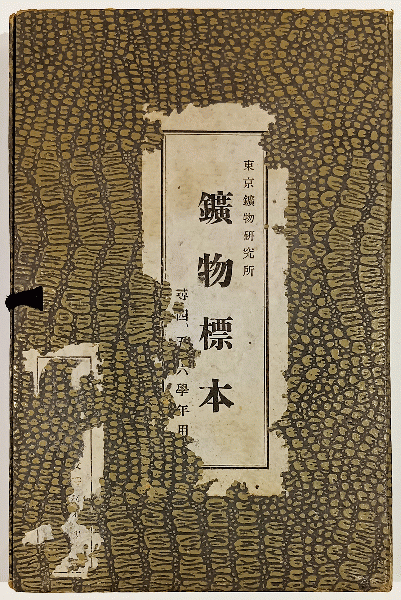 東京鑛物研究所
鑛物標本
尋四、五、六學年用